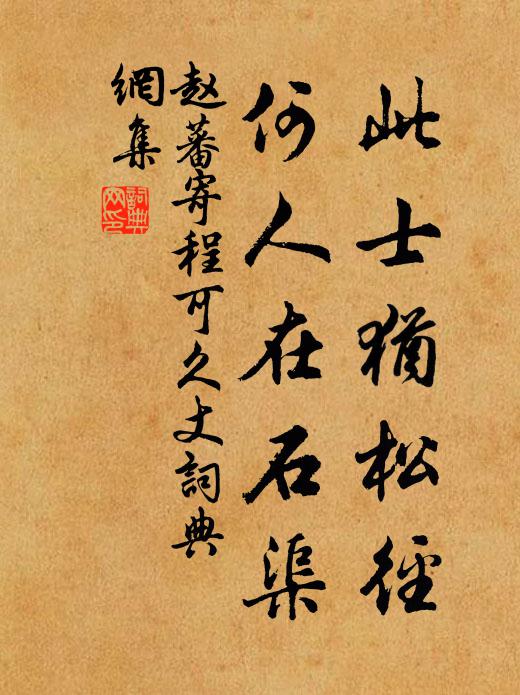 此士猶松徑
何人在石渠
赵蕃寄程可久丈詞典
網集
詞典
网印